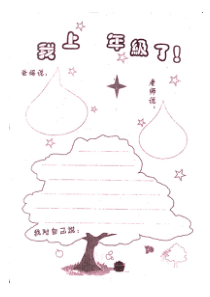 我上 年級了!
爸媽說：
老師說：
我對自己說：